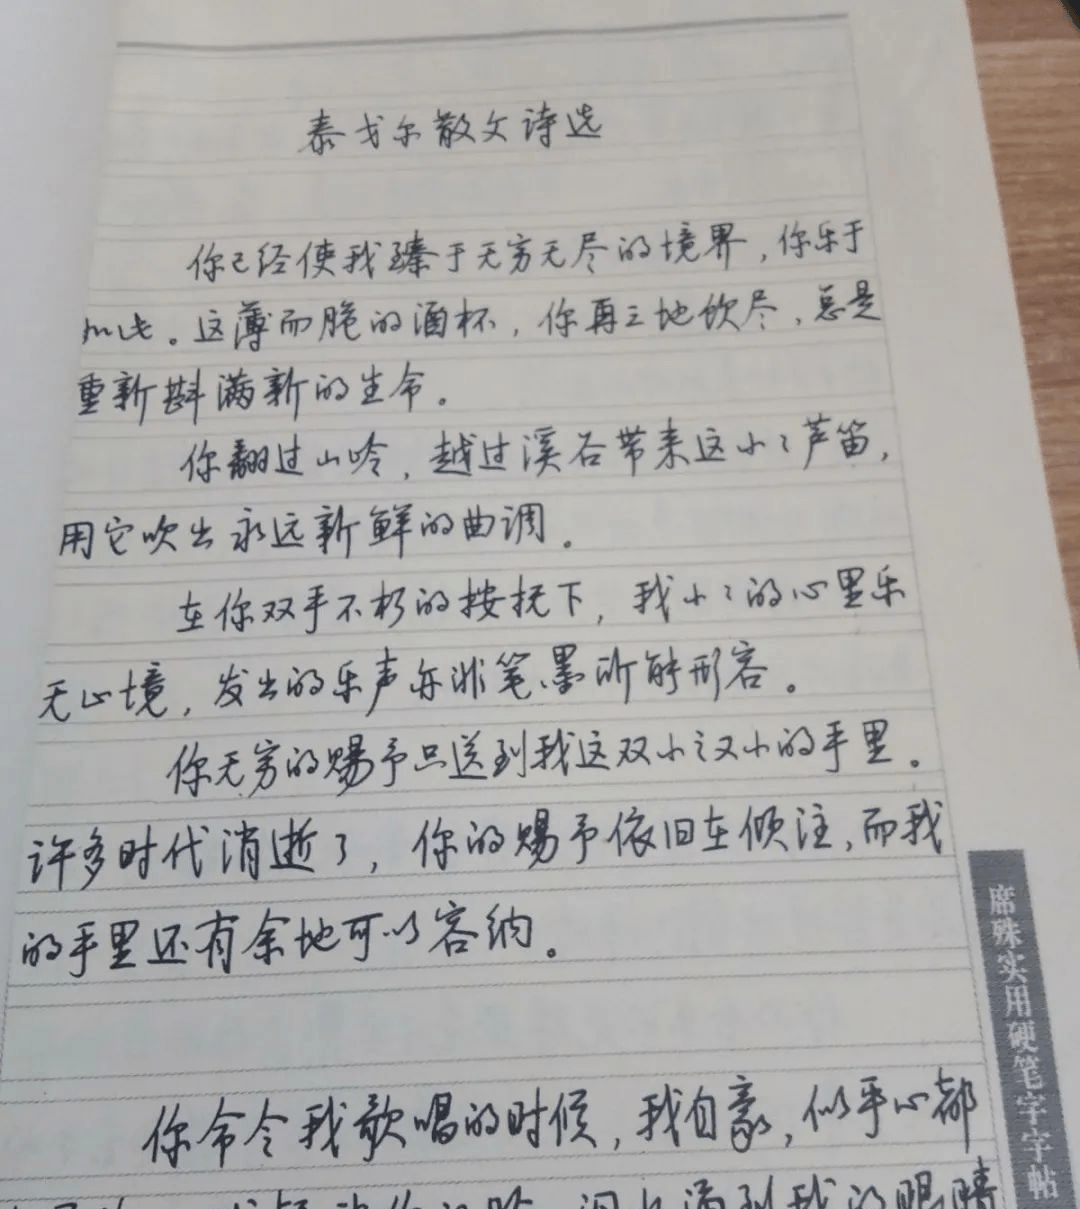 泰戈尔散文诗选
你已经使我臻于无穷无尽的境界，你乐于
如此。这薄而脆的酒杯，你再三地饮尽，总是
重新斟满新的生命。
你翻过山岭，越过溪谷带来这小小芦笛，
用它吹出永远新鲜的曲调。
在你双手不朽的按抚下，我小小的心里乐
无止境，发出的乐声亦非笔墨所能形容。
你无穷的赐予只送到我这双小之又小的手里。
许多时代消逝了，你的赐予依旧在倾注，而我
的手里还有余地可以容纳。
你命令我歌唱的时候，我自豪，似乎心都
泪水涌到我的眼睛
席殊实用硬笔字字帖